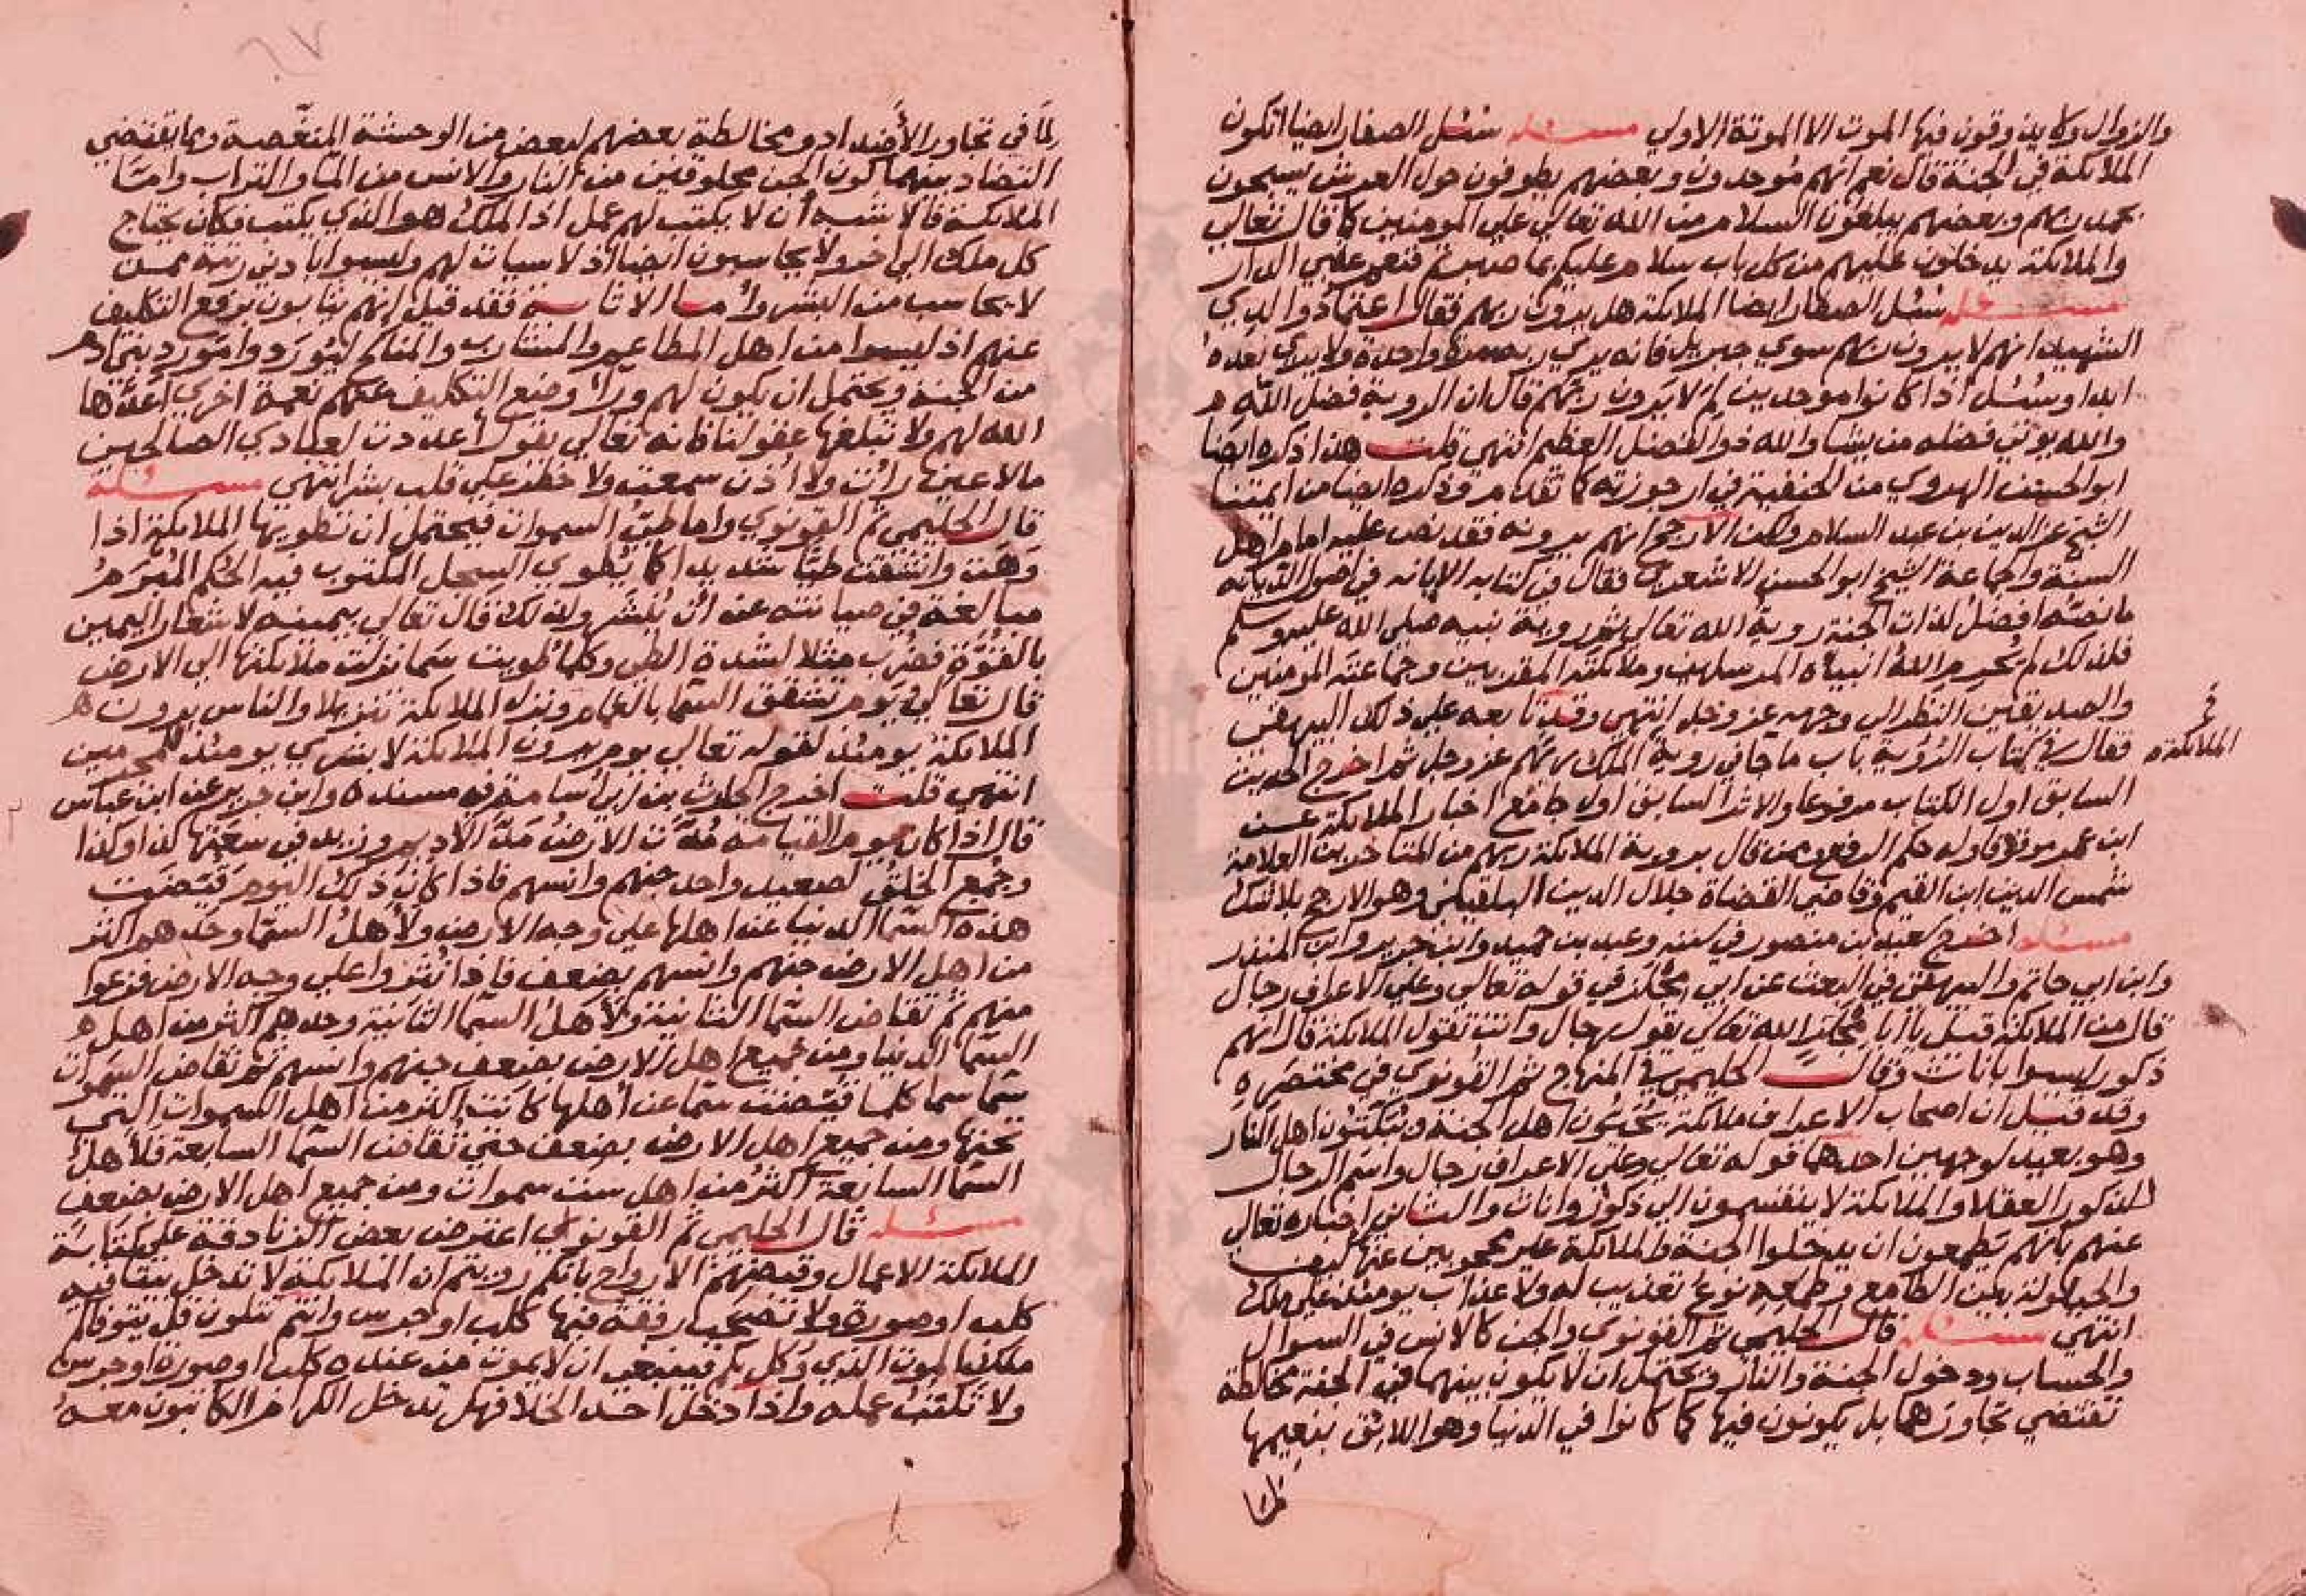 والزوال ولا يذوقون فيها الموت الا الموتة الاولي مسئلة سئل الصفار ايضا اتكون
الملائكة في الجنة قال نعم انهم موحدون وبعضهم يطوفون حول العرش يسبحون
بحمد ربهم وبعضهم يبلغون السلام من الله تعالي علي المومنين كما قال تعالي
والملائكة يدخلون عليهم من كل باب سلام عليكم بما صبرتم فنعم عقبي الدار
مسئلة سئل الصفار ايضا الملائكة هل يرون ربهم فقال اعتماد والدي
الشهيد انهم لا يرون ربهم سوي جبريل فانه يري ربه مرة واحدة ولا يري بعده
ابدا وسئل اذا كانوا موحدين لم لا يرون ربهم قال ان الروية فضل الله
والله يوتي فضله من يشا والله ذوالفضل العظيم انتهي قلت هذا ذكره ايضا
ابو الحسن الهروي من الحنفية في ارجوزته كما تقدم وذكره ايضا من ايمتنا
الشيخ عز الدين بن عبد السلام ولكن الارجح انهم يرونه فقد نص عليه امام اهل
السنة والجماعة الشيخ ابو الحسن الاشعري فقال في كتابه الابانه في اصول الديانه
ما نصه افضل لذات الجنة روية الله تعالي ثم روية نبيه صلي الله عليه وسلم
فلذلك لم يحرم الله انبياه المرسلين وملائكته المقربين وجماعة المومنين
والصديقين النظر الي وجهه عز وجل انتهي وقد تابعه علي ذلك البيهقي
فقال في كتاب الروية باب ما جا في روية الملائكة ربهم عز وجل ثم اخرج الحديث
السابق اول الكتاب مرفوعا والاثر السابق اول جامع اخبار الملائكة عن
ابن عمر موقوفا وله حكم الرفع ممن قال بروية الملائكة ربهم من المتاخرين العلامة
شمس الدين ابن القيم وقاضي القضاة جلال الدين البلقيني وهو الارجح بلا شك
مسئلة اخرج سعيد بن منصور في سننه وعبد بن حميد وابن جرير وابن المنذر
وابن ابي حاتم والبيهقي في البعث عن ابي مجلز في قوله تعالي وعلي الاعراف رجال
قال من الملائكة قيل يا ابا مجلز الله تعالي يقول رجال وانت تقول الملائكة قال انهم
ذكور ليسوا باناث وقال الحليمي في المنهاج ثم القونوي في مختصره
وقد قيل ان اصحاب الاعراف ملائكة يحبون اهل الجنة ويبكتون اهل النار
وهو بعيد لوجهين احدهما قوله تعالي وعلي الاعراف رجال واسم الرجال
للذكور العقلا والملائكة لا ينقسمون الي ذكور واناث والثاني اخباره تعالي
عنهم بانهم يطمعون ان يدخلوا الجنة والملائكة غير محجوبين عنها كيف
والحيلولة بين الطامع وطمعه نوع تعذيب له ولا عذاب يومئذ علي ملك
انتهي مسئلة قال الحليمي ثم القونوي والجن كالانس في السوال
والحساب ودخول الجنة والنار ويحتمل ان لا يكون بينهما في الجنة مخالطة
تقتضي تجاورهما بل يكونون فيها كما كانوا في الدنيا وهو اللائق بنعيمها
الملائكة
لما
لما في تجاور الأضداد ومخالطة بعضهم لبعض من الوحشة المنغصة وما يقتضي
التضاد بينهما كون الجن مخلوقين من النار والانس من الما والتراب وامتا
الملائكة فالاشبه أن لا يكتب لهم عمل اذ الملك هو الذي يكتب فكان يحتاج
كل ملك الي اخر ولا يحاسبون ايضا اذ لا سيات لهم وليسوا بادني رتبة ممن
لا يحاسب من البشر وامـا الاثابـة فقد قيل انهم يثابون برفع التكليف
عنهم اذ ليسوا من اهل المطاعم والمشارب والمناكح ليوردوا مورد بني ادم
من الجنة ويحتمل ان يكون لهم ورا وضع التكليف عنهم نعمة اخري اعدها
الله لهم ولا تبلغها عقولنا فانه تعالي يقول أعددت لعبادي الصالحين
مالا عين رات ولا اذن سمعت ولا خطر علي قلب بشر انتهي مسئلة
قال الحليمي ثم القونوي واما طي السموات فيحتمل ان تطويها الملائكة اذا
وهت وانشقت طيا شديدا كما يطوي السجل المكتوب فيه الحكم المبرم
مبالغة في صيانته عن ان ينشر ولذلك قال تعالي بيمينه لاشعار اليمين
بالقوة فضرب مثلا لشدة الطي وكلما طويت سما نزلت ملائكتها الي الارض
قال تعالي ويوم تشقق السما بالغمام ونزل الملائكة تنزيلا والناس يرون
الملائكة يومئذ لقوله تعالي يوم يرون الملائكة لا بشري يومئذ للمجرمين
انتهي قلت اخرج الحارث بن ابي اسامة في مسنده وابن جرير عن ابن عباس
قال اذا كان يوم القيامه مدت الارض مد الاديم وزيد في سعتها كذا وكذا
وجمع الخلق لصعيد واحد جنهم وانسهم فاذا كان ذلك اليوم قيضت
هذه السما الدنيا عن اهلها علي وجه الارض ولأهل السما وحدهم اكثر
من اهل الارض جنهم وانسهم بضعف فاذا نثروا علي وجه الارض فزعوا
منهم ثم تقاض السما الثانية ولأهل السما الثانية وحدهم اكثر من اهل
السما الدنيا ومن جميع اهل الارض بضعف جنهم وانسهم ثم تقاض السموات
سما سما كلما قيضت سما عن أهلها كانت اكثر من اهل السموات التي
تحتها ومن جميع اهل الارض بضعف حتي تقاض السما السابعة فلأهل
السما السابعة اكثر من اهل ست سموات ومن جميع اهل الارض بضعف
مسئلة قال الحليمي ثم القونوي اعترض بعض الزنادقة علي كتابة
الملائكة الاعمال وقبضهم الارواح بانكم رويتم ان الملائكة لا تدخل بيتا فيه
كلب او صورة ولا تصحب رفقة فيها كلب او جرس وانتم تتلون قل يتوفاكم
ملك الموت الذي وكل بكم فينبغي ان لا يموت من عنده كلب او صورة او جرس
ولا تكتب عمله واذا دخل احد الخلا فهل تدخل الكرام الكاتبون معه